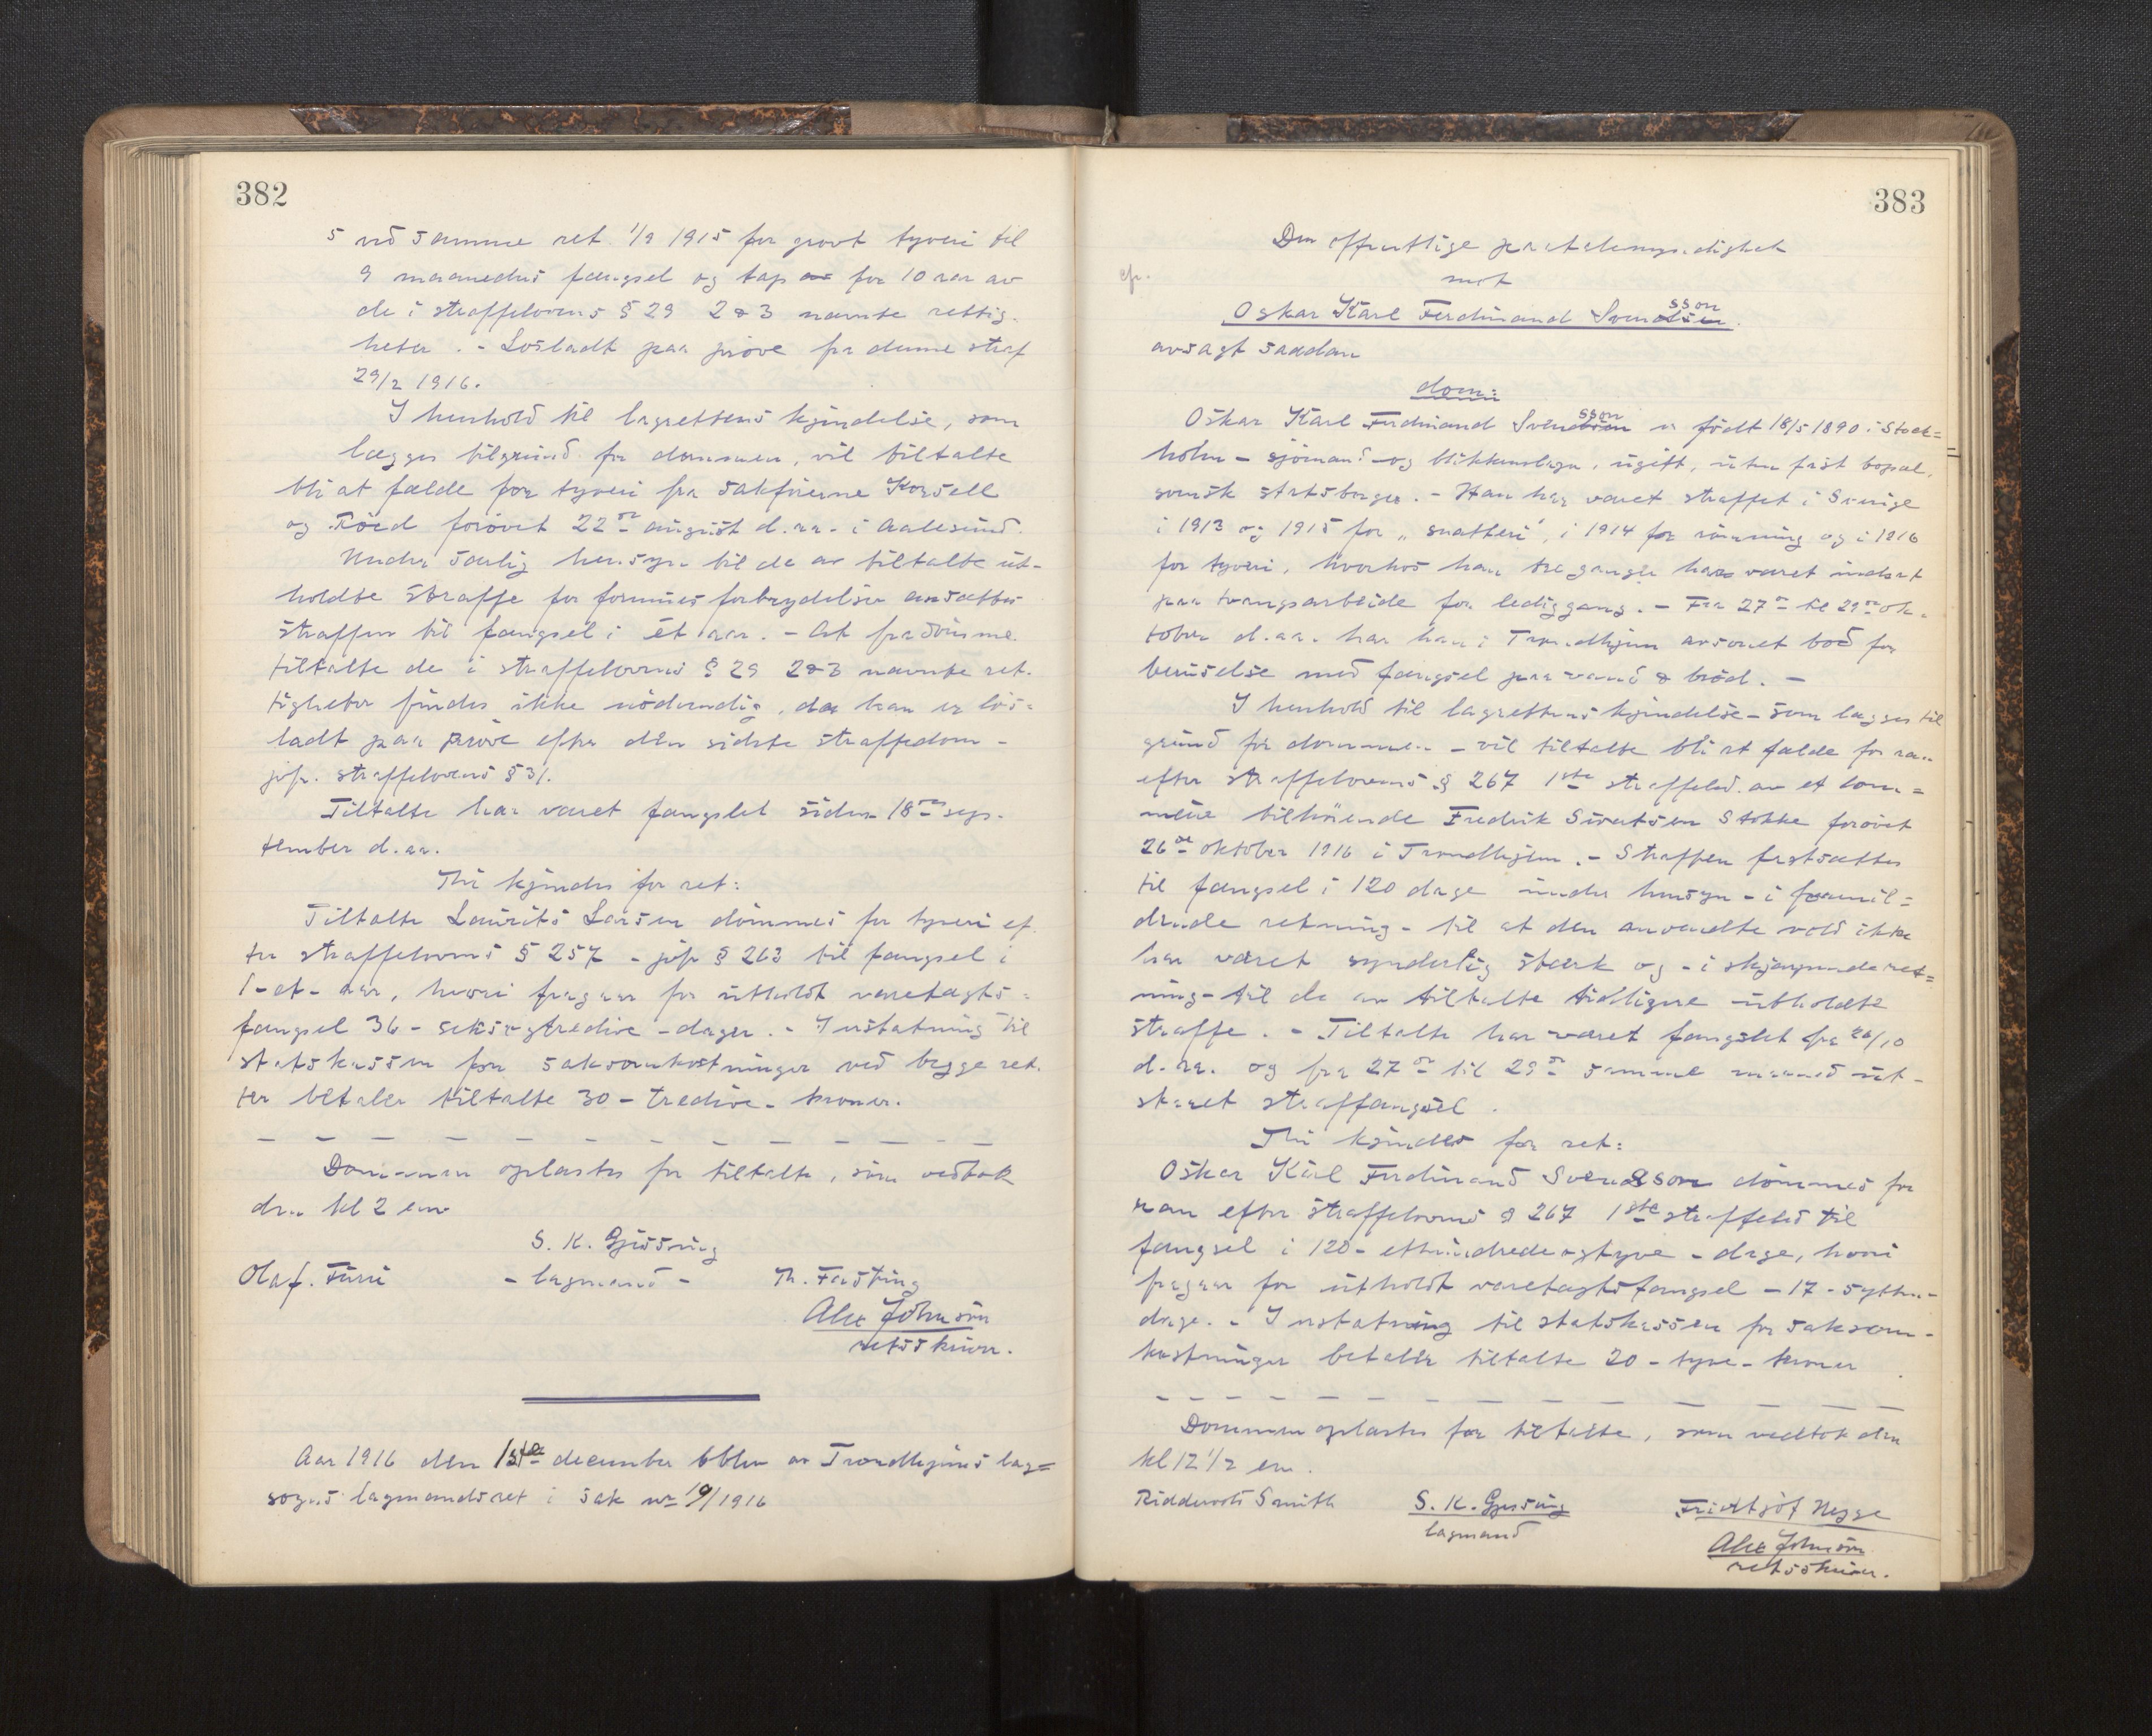 382
5 ved samme ret 1/9 1915 for grovt tyveri til
9 maaneders fængsel og tap av for 10 aar av
de i straffelovens § 29 2 & 3 nævnte rettig-
heter. - Løsladt paa prøve fra denne straf
29/2 1916.
I henhold til lagrettens kjendelse, som
lægges tilgrund for dommen, vil tiltalte
bli at fælde for tyveri fra sakførerne Korsell
og Röed forøvet 22de august d.aa. i Aalesund.
Under særlig hensyn til de av tiltalte ut-
holdte straffe for formuesforbrydelser ansættes
straffen til fængsel i et aar. - At fradömme
tiltalte de i straffelovens § 29 2 & 3 nævnte ret-
tigheter findes ikke nödvendig, da han er lös-
ladt paa prøve efter den sidste straffedom -
jvfr. straffelovens § 31.
Tiltalte har været fængslet siden 18de sep-
tember d.aa.
Thi kjendes for ret:
Tiltalte Laurits Larsen dömmes for tyveri ef-
ter straffelovens § 257 - jvfr § 263 til fængsel i
1 - et - aar, hvori fragaar for utholdt varetægts-
fængsel 36 - seksogtredive - dager. - I erstatning til
statskassen for saksomkostninger ved begge ret-
ter betaler tiltalte 30 - tredive - kroner.
Dommen oplæstes for tiltalte, som vedtok
den kl 2 em
S. K. Gjessing
- lagmand -
Olaf. Furri
Th. Fasting
Alex Johnsön
retsskriver.
Aar 1916 den 1ste december blev av Trondhjems lag=
sogns lagmandsret i sak nr 19/1916
383
Den offentlige paatalemyndighet
mot
Oskar Karl Ferdinand Svendsson
avsagt saadan
dom:
Oskar Karl Ferdinand Svendsson er födt 18/5 1890 i Stock=
holm - sjömand og blikkenslager, ugift, uten fast bopæl,
svensk statsborger. - Han har været straffet i Sverige
i 1913 og 1915 for „snatteri", i 1914 for römning og i 1916
for tyveri, hvorhos han tre ganger har været indsat
paa tvangsarbeide for lediggang. - Fra 27de til 29de ok-
tober d.aa. har han i Trondhjem avsonet bod for
beruselse med fængsel paa vand & bröd. -
I henhold til lagrettens kjendelse - som lægges til
grund for dommen - vil tiltalte bli at fælde for ran
efter straffelovens § 267 1ste straffeled av et lom=
meur tilhörende Fredrik Sivertsen Stokke forövet
26de oktober 1916 i Trondhjem. - Straffen fastsættes
til fængsel i 120 dage under hensyn - i formil=
dende retning - til at den anvendte vold ikke
har været synderlig stærk og - i skjærpende ret=
ning - til de av tiltalte tidligere utholdte
straffe. - Tiltalte har været fængslet fra 26/10
d.aa. og fra 27de til 29de samme maaned ut-
staaet straffængsel.
Thi kjendes for ret:
Oskar Karl Ferdinand Svendsson dömmes for
ran efter straffelovens § 267 1ste straffeled til
fængsel i 120 - etthundredeogtyve - dage, hvori
fragaar for utholdt varetægtsfængsel - 17 - sytten -
dage. - I erstatning til statskassen for saksom-
kostninger betaler tiltalte 20 - tyve - kroner.
Dommen oplæstes for tiltalte, som vedtok den
kl 12 1/2 em.
Ridderodt Smith
S. K. Gjessing
lagmand
Fridtjof Hegge
Alex Johnsön
retsskriver.